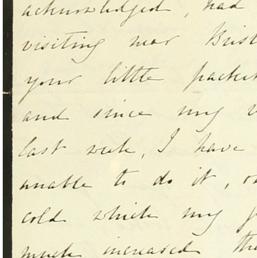 acknowledged, had
visiting near Brist
your little packet
and since my
last week, I have
unable to do it, o
cold which my
much increased the